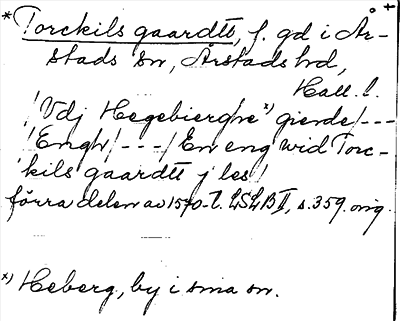 * Torckils gaardtt, f. gd i År- +
stads sn, Årstads hd,
Hall. l.
/Vdj Hegebierghe x) gierde/---
/Engh/---/En eng wid Torc-
kils gaardtt j les/
förra delen av 1570-t. LSLB II, s. 359. orig.
x) Heberg, by i sma sn.